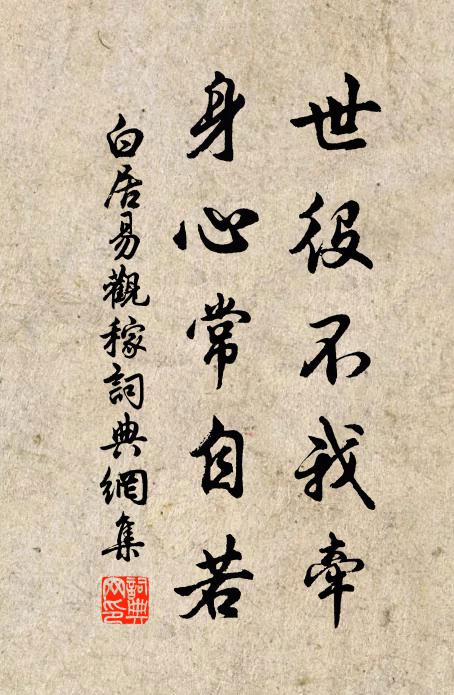 世役不我牽
身心常自若
白居易觀稼詞典網集
詞典
网印